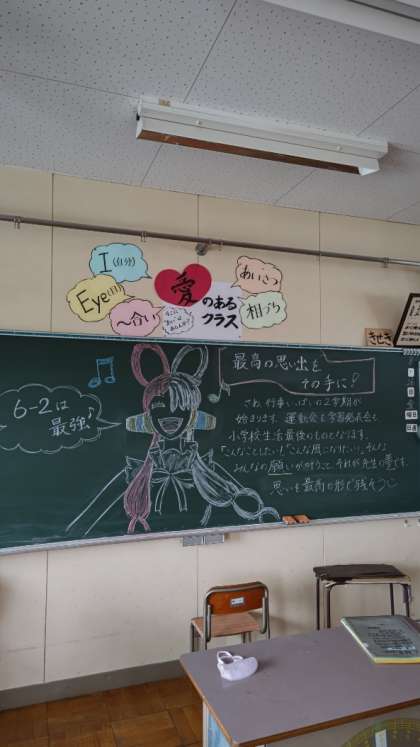 I(自分)
Eye(目)
〜合い
愛のある
クラス
あいさつ
相づち
きせき
6-2は
最強♪
最高の思い出を
その手に!
さあ、行事いっぱいの2学期が
始まります。運動会も学習発表会も
小学校生活最後のものとなります。
「こんなことしたい!」「こんな風になりたい!」そんな
みんなの願いが叶うこと、それが先生の夢です
思いを最高の形で残そう
月
日
曜日
日直